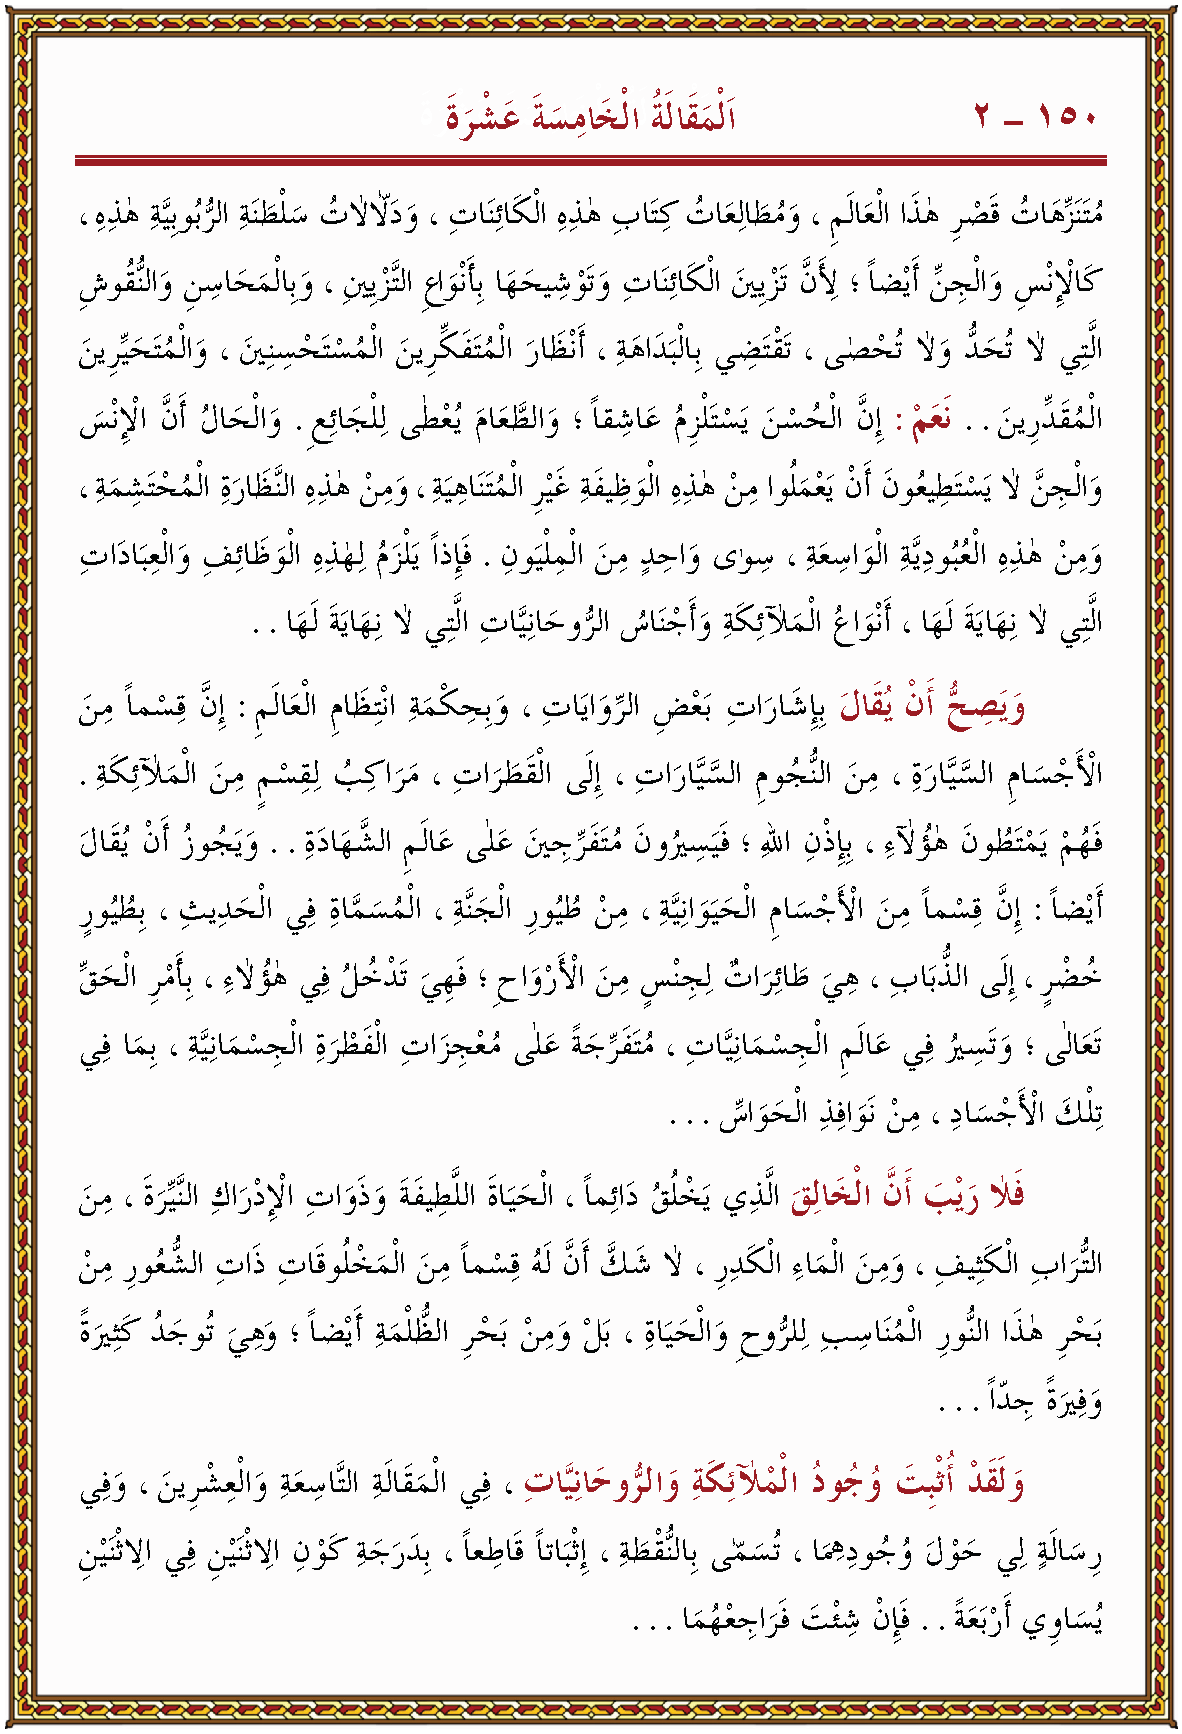 ١٥٠ – ٢ اَلْمَقَالَةُ الْخَامِسَةَ عَشْرَةَ
مُتَنَزِّهَاتُ قَصْرِ هٰذَا الْعَالَمِ ، وَمُطَالِعَاتُ كِتَابِ هٰذِهِ الْكَائِنَاتِ ، وَدَلّٰالٰاتُ سَلْطَنَةِ الرُّبُوبِيَّةِ هٰذِهِ ،
كَالْإِنْسِ وَالْجِنِّ أَيْضاً ؛ لِأَنَّ تَزْيِينَ الْكَائِنَاتِ وَتَوْشِيحَهَا بِأَنْوَاعِ التَّزْيِينِ ، وَبِالْمَحَاسِنِ وَالنُّقُوشِ
الَّتِي لٰا تُحَدُّ وَلٰا تُحْصٰى ، تَقْتَضِي بِالْبَدَاهَةِ ، أَنْظَارَ الْمُتَفَكِّرِينَ الْمُسْتَحْسِنِينَ ، وَالْمُتَحَيِّرِينَ
الْمُقَدِّرِينَ . . نَعَمْ : إِنَّ الْحُسْنَ يَسْتَلْزِمُ عَاشِقاً ؛ وَالطَّعَامَ يُعْطٰى لِلْجَائِعِ . وَالْحَالُ أَنَّ الْإِنْسَ
وَالْجِنَّ لٰا يَسْتَطِيعُونَ أَنْ يَعْمَلُوا مِنْ هٰذِهِ الْوَظِيفَةِ غَيْرِ الْمُتَنَاهِيَةِ ، وَمِنْ هٰذِهِ النَّظَارَةِ الْمُحْتَشِمَةِ ،
وَمِنْ هٰذِهِ الْعُبُودِيَّةِ الْوَاسِعَةِ ، سِوٰى وَاحِدٍ مِنَ الْمِلْيَونِ . فَإِذاً يَلْزَمُ لِهٰذِهِ الْوَظَائِفِ وَالْعِبَادَاتِ
الَّتِي لٰا نِهَايَةَ لَهَا ، أَنْوَاعُ الْمَلٰآئِكَةِ وَأَجْنَاسُ الرُّوحَانِيَّاتِ الَّتِي لٰا نِهَايَةَ لَهَا . .
وَيَصِحُّ أَنْ يُقَالَ بِإِشَارَاتِ بَعْضِ الرِّوَايَاتِ ، وَبِحِكْمَةِ انْتِظَامِ الْعَالَمِ : إِنَّ قِسْماً مِنَ
الْأَجْسَامِ السَّيَّارَةِ ، مِنَ النُّجُومِ السَّيَّارَاتِ ، إِلَى الْقَطَرَاتِ ، مَرَاكِبُ لِقِسْمٍ مِنَ الْمَلٰآئِكَةِ .
فَهُمْ يَمْتَطُونَ هٰؤُلٰآءِ ، بِإِذْنِ اللهِ ؛ فَيَسِيرُونَ مُتَفَرِّجِينَ عَلٰى عَالَمِ الشَّهَادَةِ . . وَيَجُوزُ أَنْ يُقَالَ
أَيْضاً : إِنَّ قِسْماً مِنَ الْأَجْسَامِ الْحَيَوَانِيَّةِ ، مِنْ طُيُورِ الْجَنَّةِ ، الْمُسَمَّاةِ فِي الْحَدِيثِ ، بِطُيُورٍ
خُضْرٍ ، إِلَى الذُّبَابِ ، هِيَ طَائِرَاتٌ لِجِنْسٍ مِنَ الْأَرْوَاحِ ؛ فَهِيَ تَدْخُلُ فِي هٰؤُلٰاءِ ، بِأَمْرِ الْحَقِّ
تَعَالٰى ؛ وَتَسِيرُ فِي عَالَمِ الْجِسْمَانِيَّاتِ ، مُتَفَرِّجَةً عَلٰى مُعْجِزَاتِ الْفَطْرَةِ الْجِسْمَانِيَّةِ ، بِمَا فِي
تِلْكَ الْأَجْسَادِ ، مِنْ نَوَافِذِ الْحَوَاسِّ . . .
فَلٰا رَيْبَ أَنَّ الْخَالِقَ الَّذِي يَخْلُقُ دَائِماً ، الْحَيَاةَ اللَّطِيفَةَ وَذَوَاتِ الْإِدْرَاكِ النَّيِّرَةَ ، مِنَ
التُّرَابِ الْكَثِيفِ ، وَمِنَ الْمَاءِ الْكَدِرِ ، لٰا شَكَّ أَنَّ لَهُ قِسْماً مِنَ الْمَخْلُوقَاتِ ذَاتِ الشُّعُورِ مِنْ
بَحْرِ هٰذَا النُّورِ الْمُنَاسِبِ لِلرُّوحِ وَالْحَيَاةِ ، بَلْ وَمِنْ بَحْرِ الظُّلْمَةِ أَيْضاً ؛ وَهِيَ تُوجَدُ كَثِيرَةً
وَفِيرَةً جِدّاً . . .
وَلَقَدْ أُثْبِتَ وُجُودُ الْمَلٰآئِكَةِ وَالرُّوحَانِيَّاتِ ، فِي الْمَقَالَةِ التَّاسِعَةِ وَالْعِشْرِينَ ، وَفِي
رِسَالَةٍ لِي حَوْلَ وُجُودِهِمَا ، تُسَمّٰى بِالنُّقْطَةِ ، إِثْبَاتاً قَاطِعاً ، بِدَرَجَةِ كَوْنِ الِاثْنَيْنِ فِي الِاثْنَيْنِ
يُسَاوِي أَرْبَعَةً . . فَإِنْ شِئْتَ فَرَاجِعْهُمَا . . .